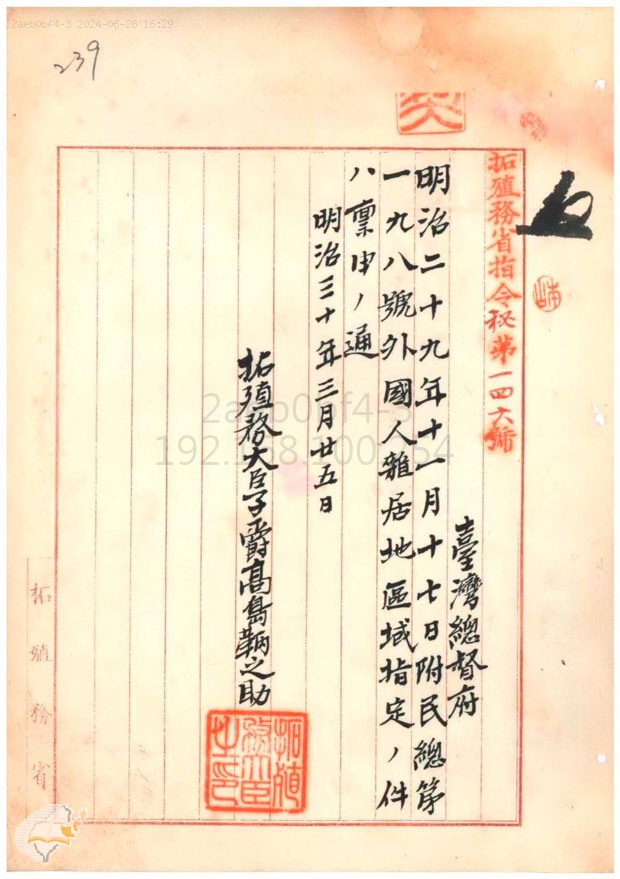 2aeb0bf4-3 2024-06-28 16:29
239
拓殖務省指令秘第一四六號
臺灣總督府
明治二十九年十一月十七日附民總第
一九八號外國人雜居地區域指定ノ件
八稟申ノ通
明治三十年三月廿五日
拓殖務大臣子爵高島鞆之助
拓殖務大臣之印
拓殖務省
2aeb0bf4-3
192.168.100.254